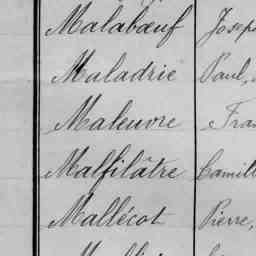 Malabœuf Josep
Maladrie Paul,
Maleuvre Fran
Malfilâtre Camill
Mallécot Pierre,